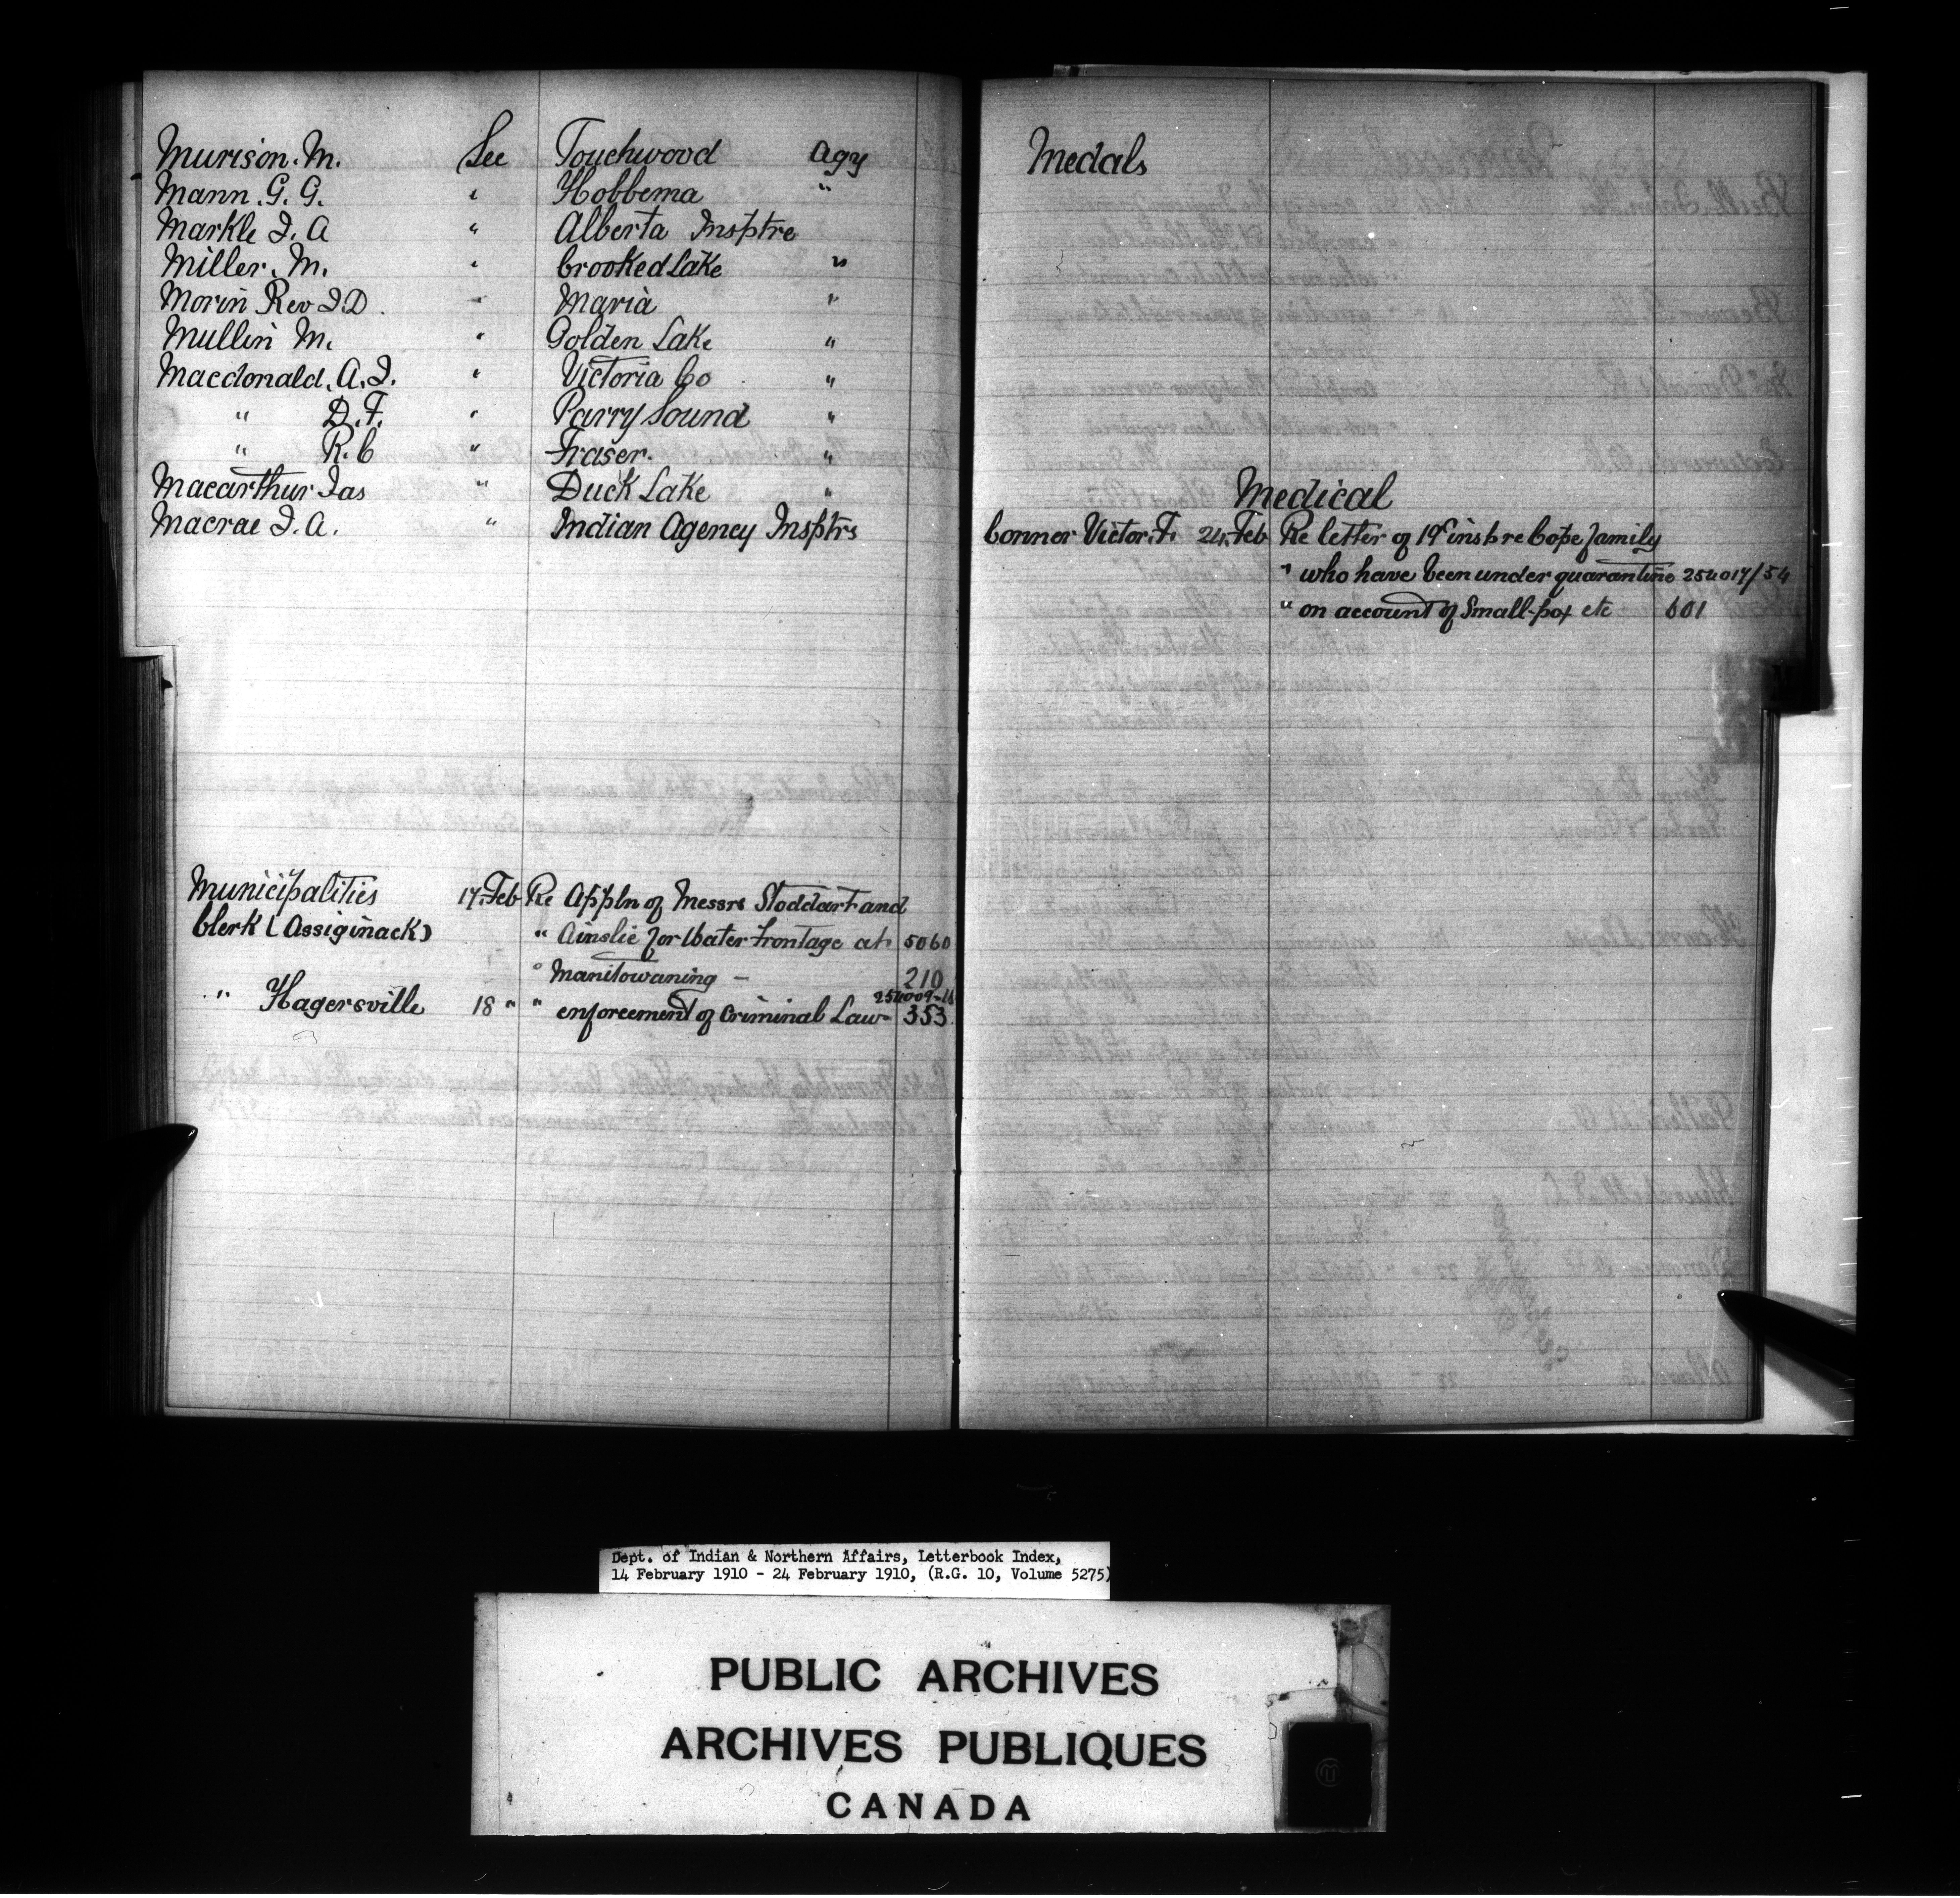 Murison. M. See Touchwood Agy
Mann. G. G. " Hobbema "
Markle J. A " Alberta Insptre
Miller. M. " Crooked Lake "
Morin Rev J. D. " Maria "
Mullin M. " Golden Lake "
Macdonald. A. J. " Victoria Co "
" D. F. " Parry Sound "
" R. C " Fraser. "
Macarthur Jas " Duck Lake "
Macrae J. A. " Indian Agency Insptrs
Municipalities 17. Feb Re Appln of Messrs Stoddart and
Clerk (Assiginack) " Ainslie for Water frontage at 5060
" Manitowaning — 210
254009-16
" Hagersville 18 " " enforcement of Criminal Law 353
Medals
Medical
Conner Victor. F. 24. Feb Re letter of 19th inst re Cope family
" who have been under quarantine 254017/54
" on account of Small-pox etc 601
Dept. of Indian & Northern Affairs, Letterbook Index,
14 February 1910 - 24 February 1910, (R.G. 10, Volume 5275)
PUBLIC ARCHIVES
ARCHIVES PUBLIQUES
CANADA